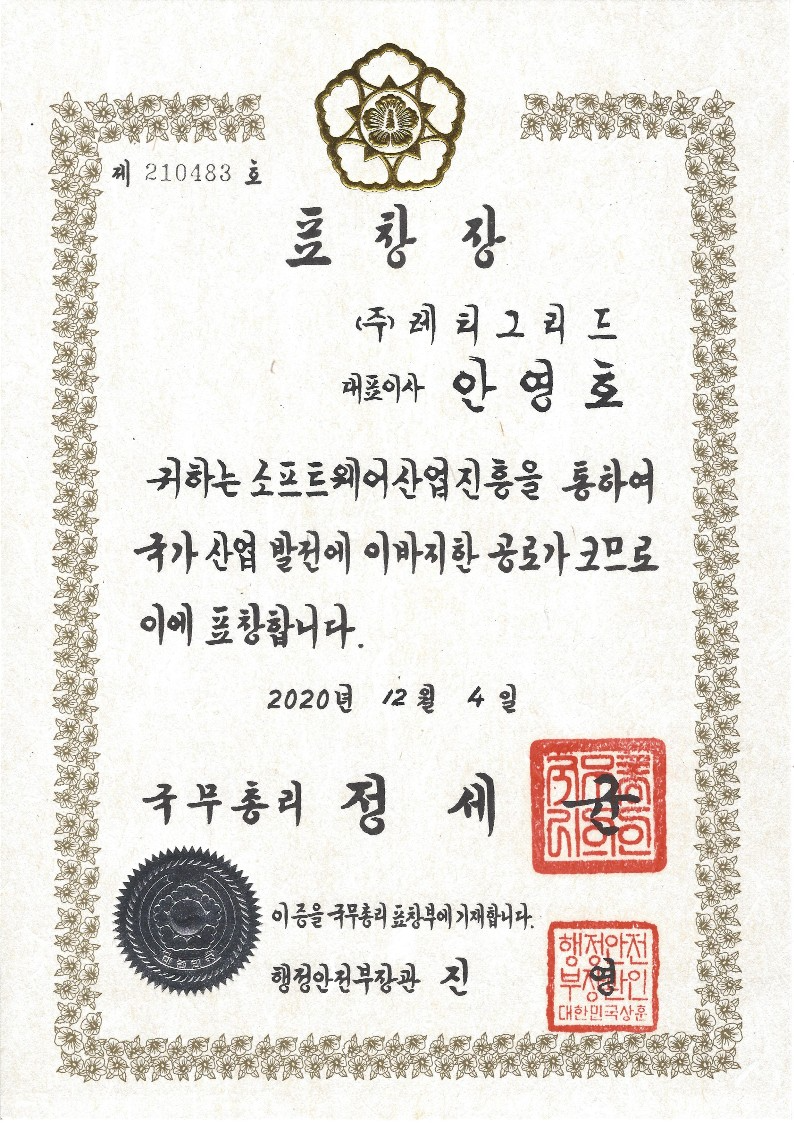 제 210483 호
표창장
(주)레티그리드
대표이사 안영호
귀하는 소프트웨어산업진흥을 통하여
국가 산업 발전에 이바지한 공로가 크므로
이에 표창합니다.
2020년 12월 4일
국무총리 정세균
이 증을 국무총리 표창부에 기재합니다.
행정안전부장관 진영
행정안전
부장관인
대한민국상훈